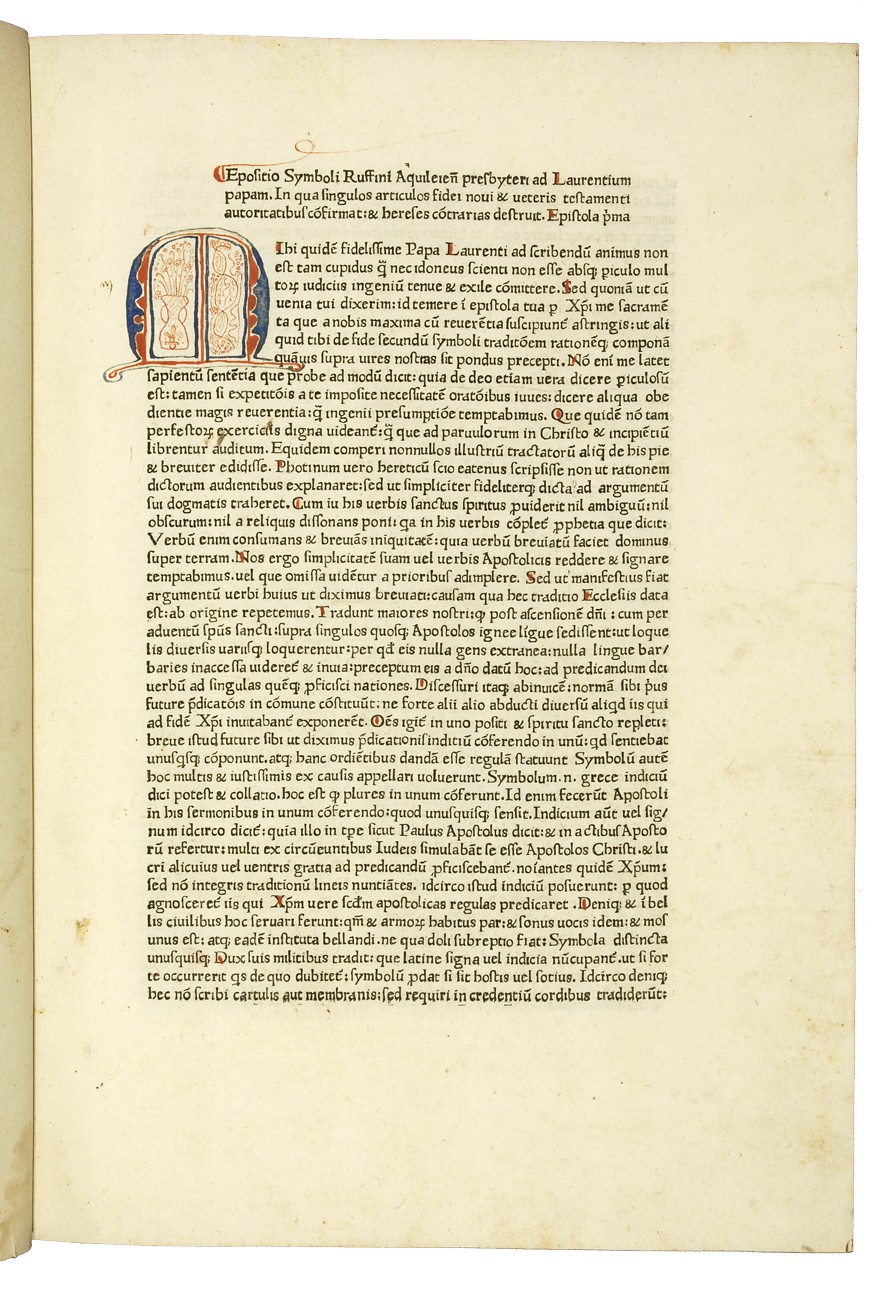 Epositio Symboli Ruffini Aquileien̄ presbyteri ad Laurentium
papam. In qua singulos articulos fidei noui & ueteris testamenti
autoritatibus cōfirmat: & hereses cōtrarias destruit. Epistola p̄ma
m
MIhi quidē fidelissime Papa Laurenti ad scribendū animus non
est tam cupidus q̄ nec idoneus scienti non esse absq; ꝑiculo mul
toꝝ iudiciis ingeniū tenue & exile cōmittere. Sed quoniā ut cū
uenia tui dixerim: id temere ī epistola tua ꝑ Xp̄i me sacramē
ta que a nobis maxima cū reuerētia suscipiunt̄ astringis: ut ali
quid tibi de fide secundū symboli traditōem rationēq; componā
quāuis supra uires nostras sit pondus precepti. Nō eni me latet
sapientū sentētia que probe ad modū dicit: quia de deo etiam uera dicere ꝑiculosū
est: tamen si expetitōis a te imposite necessitatē oratōibus iuues: dicere aliqua obe
dientie magis reuerentia: q̄ ingenii presumptiōe temptabimus. Que quidē nō tam
perfectoꝝ exerciciis digna uideant̄: q̄ que ad paruulorum in Christo & incipiētiū
librentur auditum. Equidem comperi nonnullos illustriū tractatorū aliq̄ de his pie
& breuiter edidisse. Photinum uero hereticū scio eatenus scripsisse non ut rationem
dictorum audientibus explanaret: sed ut simpliciter fideliterq; dicta ad argumentū
sui dogmatis traheret. Cum iu his uerbis sanctus spiritus ꝓuiderit nil ambiguū: nil
obscurum: nil a reliquis dissonans poni: qa in his uerbis cōplet̄ ꝓphetia que dicit:
Verbū enim consumans & breuiās iniquitatē: quia uerbū breuiatū faciet dominus
super terram. Nos ergo simplicitatē suam uel uerbis Apostolicis reddere & signare
temptabimus. uel que omissa uidētur a prioribus adimplere. Sed ut manifestius fiat
argumentū uerbi huius ut diximus breuiati: causam qua hec traditio Ecclesiis data
est: ab origine repetemus. Tradunt maiores nostri: ꝙ post ascensionē dn̄i : cum per
aduentū sp̄us sancti: supra singulos quosq; Apostolos ignee līgue sedissent: ut loque
lis diuersis uariisq; loquerentur: per qd̄ eis nulla gens extranea: nulla lingue bar/
baries inaccessa uideret̄ & inuia: preceptum eis a dn̄o datū hoc: ad predicandum dei
uerbū ad singulas quēq; ꝓficisci nationes. Discessuri itaq; abinuicē: normā sibi p̄us
future p̄dicatōis in cōmune cōstituūt: ne forte alii alio abducti diuersū aliqd iis qui
ad fidē Xp̄i inuitabant̄ exponerēt. Oēs igit̄ in uno positi & spiritu sancto repleti:
breue istud future sibi ut diximus p̄dicationis inditiū cōferendo in unū: qd sentiebat
unusqsq; cōponunt. atq; hanc ordiētibus dandā esse regulā statuunt Symbolū autē
hoc multis & iustissimis ex causis appellari uoluerunt. Symbolum .n. grece indiciū
dici potest & collatio. hoc est ꝙ plures in unum cōferunt. Id enim fecerūt Apostoli
in his sermonibus in unum cōferendo: quod unusquisq; sensit. Indicium aūt uel sig/
num idcirco dicit̄: quia illo in tp̄e sicut Paulus Apostolus dicit: & in actibus Aposto
rū refertur: multi ex circūeuntibus Iudeis simulabāt se esse Apostolos Christi. & lu
cri alicuius uel uentris gratia ad predicandū ꝓficiscebant̄. noīantes quidē Xp̄um:
sed nō integris traditionū lineis nuntiātes. idcirco istud indiciū posuerunt: ꝑ quod
agnosceret̄ iis qui Xp̄m uere scd̄m apostolicas regulas predicaret . Deniq; & ī bel
lis ciuilibus hoc seruari ferunt: qm̄ & armoꝝ habitus par: & sonus uocis idem: & mos
unus est: atq; eadē instituta bellandi. ne qua doli subreptio fiat: Symbola distincta
unusquisq; Dux suis militibus tradit: que latine signa uel indicia nūcupant̄. ut si for
te occurrerit qs de quo dubitet̄: symbolū ꝓdat si sit hostis uel sotius. Idcirco deniq;
hec nō scribi cartulis aut membranis: sed requiri in credentiū cordibus tradiderūt: